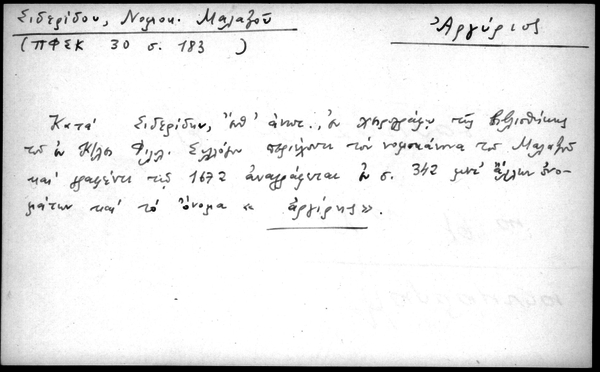 Σιδερίδου, Νομοκ. Μαλαξοῦ
(ΠΦΣΚ 30 σ. 183 )
Ἀργύριος
Κατὰ Σιδερίδην, ἔνθ' ἀνωτ., ἐν χειρογράφῳ τῆς βιβλιοθήκης
τοῦ ἐν Κ/λει Φιλ. Συλλόγου περιέχοντι τὸν νομοκάνονα τοῦ Μαλαξοῦ
καὶ γραφέντι τῷ 1672 ἀναγράφεται ἐν σ. 342 μετ' ἄλλων ὀνο-
μάτων καὶ τὸ ὄνομα « ἀργίρης».